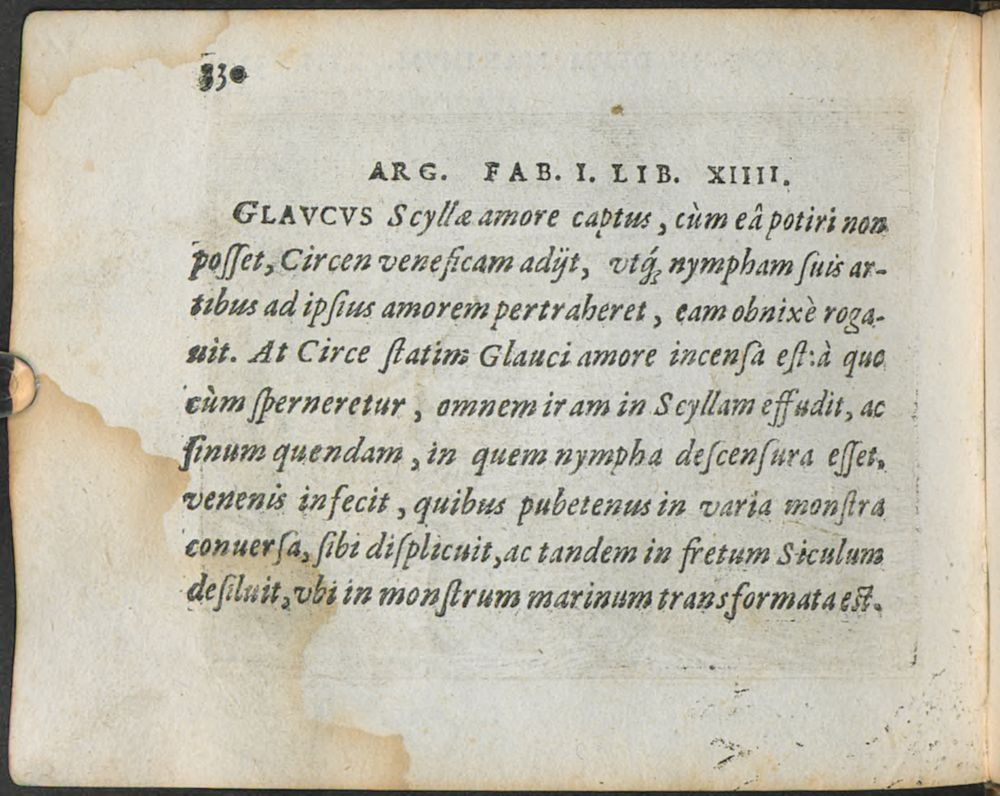 330
ARG. FAB. I. LIB. XIIII.
GLAVCVS Scyllæ amore captus, cùm eâ potiri non
posset, Circen veneficam adijt, vtq́; nympham suis ar-
tibus ad ipsius amorem pertraheret, eam obnixè roga-
uit. At Circe statim Glauci amore incensa est: à quo
cùm sperneretur, omnem iram in Scyllam effudit, ac
sinum quendam, in quem nympha descensura esset,
venenis infecit, quibus pubetenus in varia monstra
conuersa, sibi displicuit, ac tandem in fretum Siculum
desiluit, vbi in monstrum marinum transformata est.